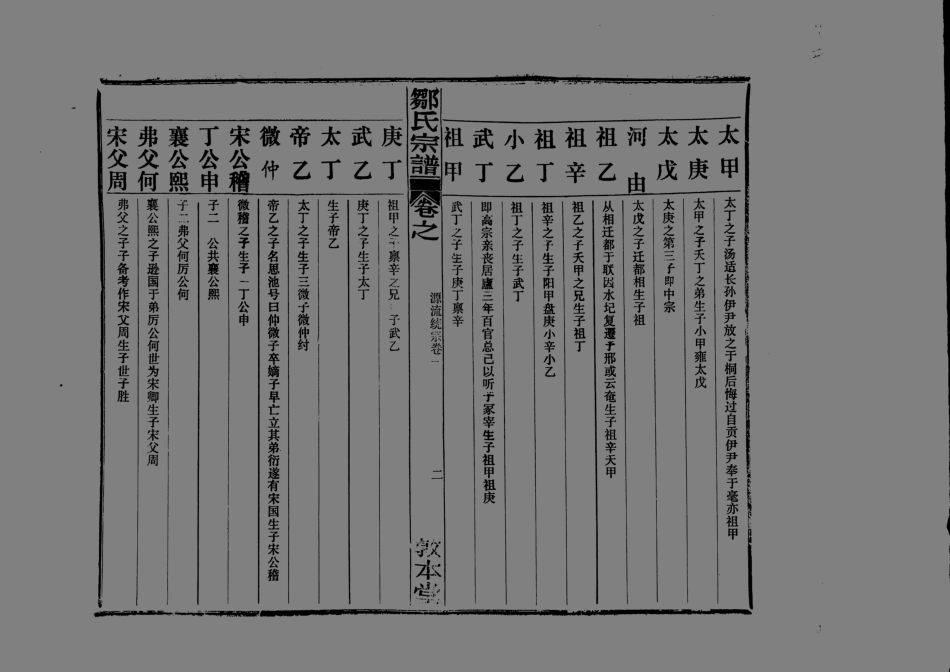 太甲
太丁之子汤适长孙伊尹放之于桐后悔过自贡伊尹奉于亳亦祖甲
太庚
太甲之子夭丁之弟生子小甲雍太戊
太戊
太庚之第三子即中宗
河由
太戊之子迁都相生子祖
祖乙
从相迁都于耿因水圮复迁于邢或云奄生子祖辛夭甲
祖辛
祖乙之子夭甲之兄生子祖丁
祖丁
祖辛之子生子阳甲盘庚小辛小乙
小乙
祖丁之子生子武丁
武丁
即高宗亲丧居廬三年百官总己以听于冢宰生子祖甲祖庚
祖甲
武丁之子生子庚丁禀辛
鄒氏宗譜
卷之
源流统宗卷一
二
敦本堂
庚丁
祖甲之子禀辛之兄 子武乙
武乙
庚丁之子生子太丁
太丁
生子帝乙
帝乙
太丁之子生子三微子微仲纣
微仲
帝乙之子名思池号曰仲微子卒嫡子早亡立其弟衍遂有宋国生子宋公稽
宋公稽
微稽之子生子一丁公申
丁公申
子二 公共襄公熙
襄公熙
子二弗父何厉公何
弗父何
襄公熙之子逊国于弟厉公何世为宋卿生子宋父周
宋父周
弗父之子子备考作宋父周生子世子胜